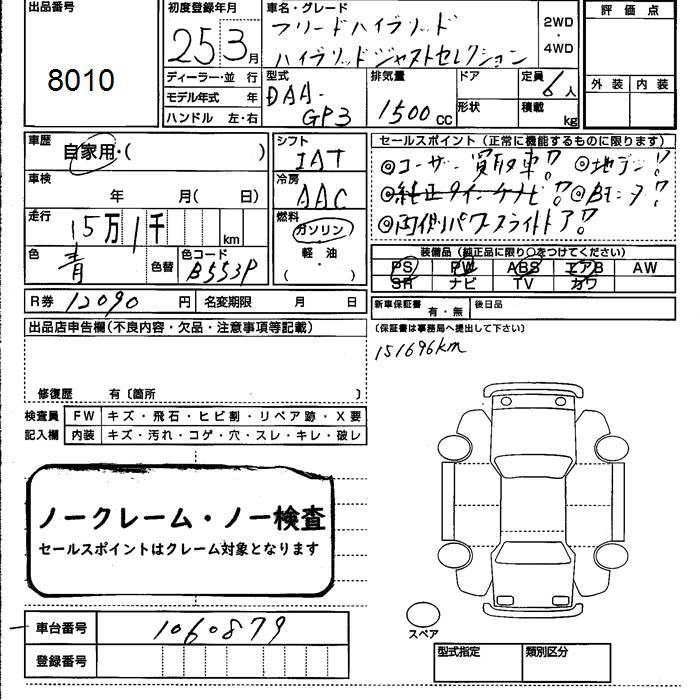 出品番号
8010
初度登録年月
25 3月
車名・グレード
フリードハイブリッド
ハイブリッドジャストセレクション
2WD
・
4WD
評価点
外装 内装
ディーラー・並 行
モデル年式 年
ハンドル 左・右
型式
DAA-
GP3
排気量
1500cc
ドア
形状
定員
6人
積載
kg
車歴
自家用・( )
車検
年 月( 日)
走行
15万1千 km
色
青
色替
色コード
B553P
シフト
IAT
冷房
AAC
燃料
ガソリン
軽・油
( )
セールスポイント(正常に機能するものに限ります)
◎ユーザー買取車!! ◎地デジ!!
◎純正タインケナビ!! ◎Bモニタ!!
◎両側パワースライドドア!!
装備品(純正品に限り○をつけてください)
PS PW ABS エアB AW
SR ナビ TV カワ
R券 12090円 名変期限 月 日
新車保証書 有・無 後日品
(保証書は事務局へ提出して下さい)
151696km
出品店申告欄(不良内容・欠品・注意事項等記載)
修復歴 有〔箇所 〕
検査員 FW キズ・飛石・ヒビ割・リペア跡・X要
記入欄 内装 キズ・汚れ・コゲ・穴・スレ・キレ・破レ
ノークレーム・ノー検査
セールスポイントはクレーム対象となります
車台番号 1060879
登録番号
スペア
型式指定 類別区分